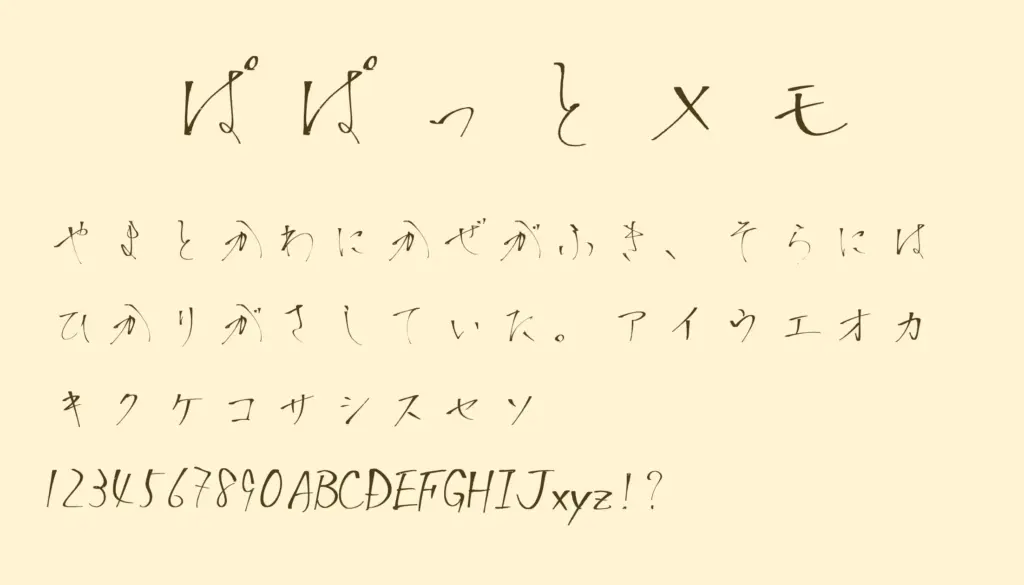 ぱぱっとメモ
やまとかわにかぜがふき、そらには
ひかりがさしていた。アイウエオカ
キクケコサシスセソ
1234567890ABCDEFGHIJxyz!?